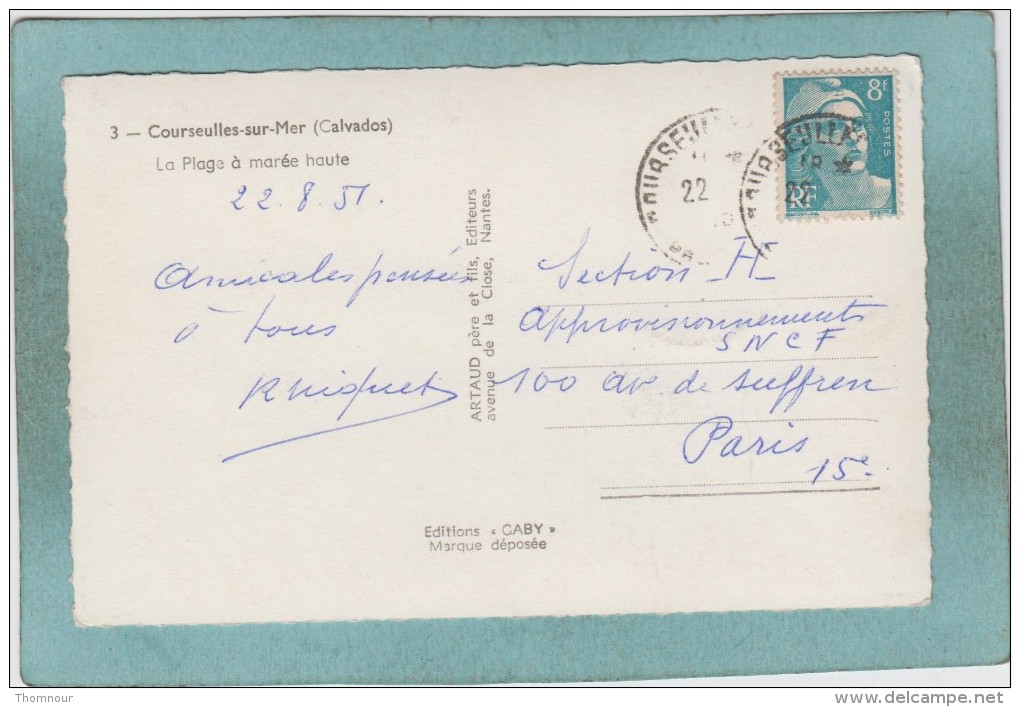 3 — Courseulles-sur-Mer (Calvados)
La Plage à marée haute
22.8.51.
Amicales pensées
à tous
ARTAUD père et fils, Editeurs
avenue de la Close, Nantes.
8F
POSTES
RF
COURSEULLES
18 *
22
COURSEULLES
22
Section H
Approvisionnements
SNCF
100 av. de Suffren
Paris
15e
Editions « GABY »
Marque déposée
Thomnour
www.delcampe.net